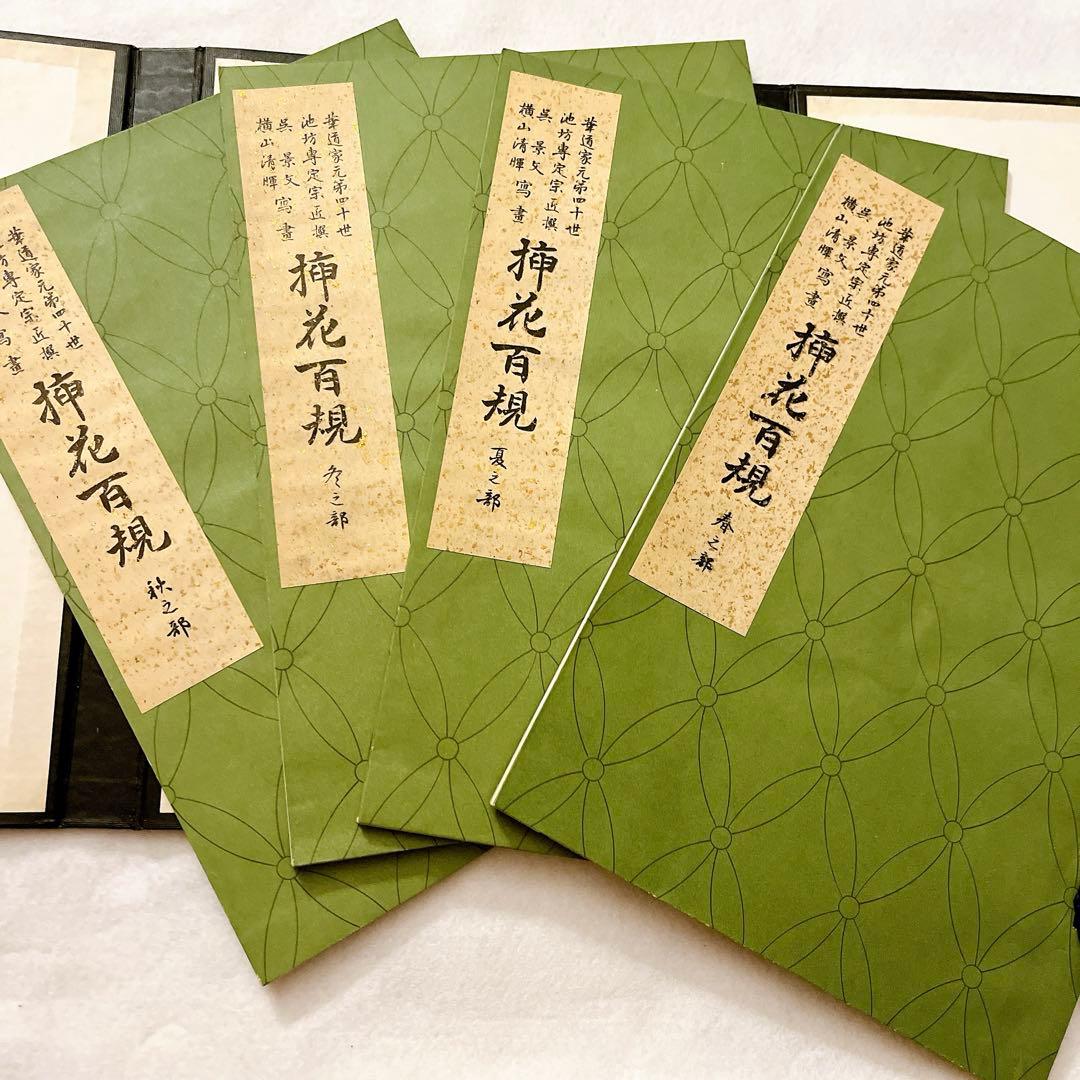 華道家元第四十世
池坊專定宗匠撰
呉景文
横山清暉
寫畫
挿花百規
春之部
華道家元第四十世
池坊專定宗匠撰
呉景文
横山清暉
寫畫
挿花百規
夏之部
華道家元第四十世
池坊專定宗匠撰
呉景文
横山清暉
寫畫
挿花百規
冬之部
華道家元第四十世
坊專定宗匠撰
寫畫
挿花百規
秋之部